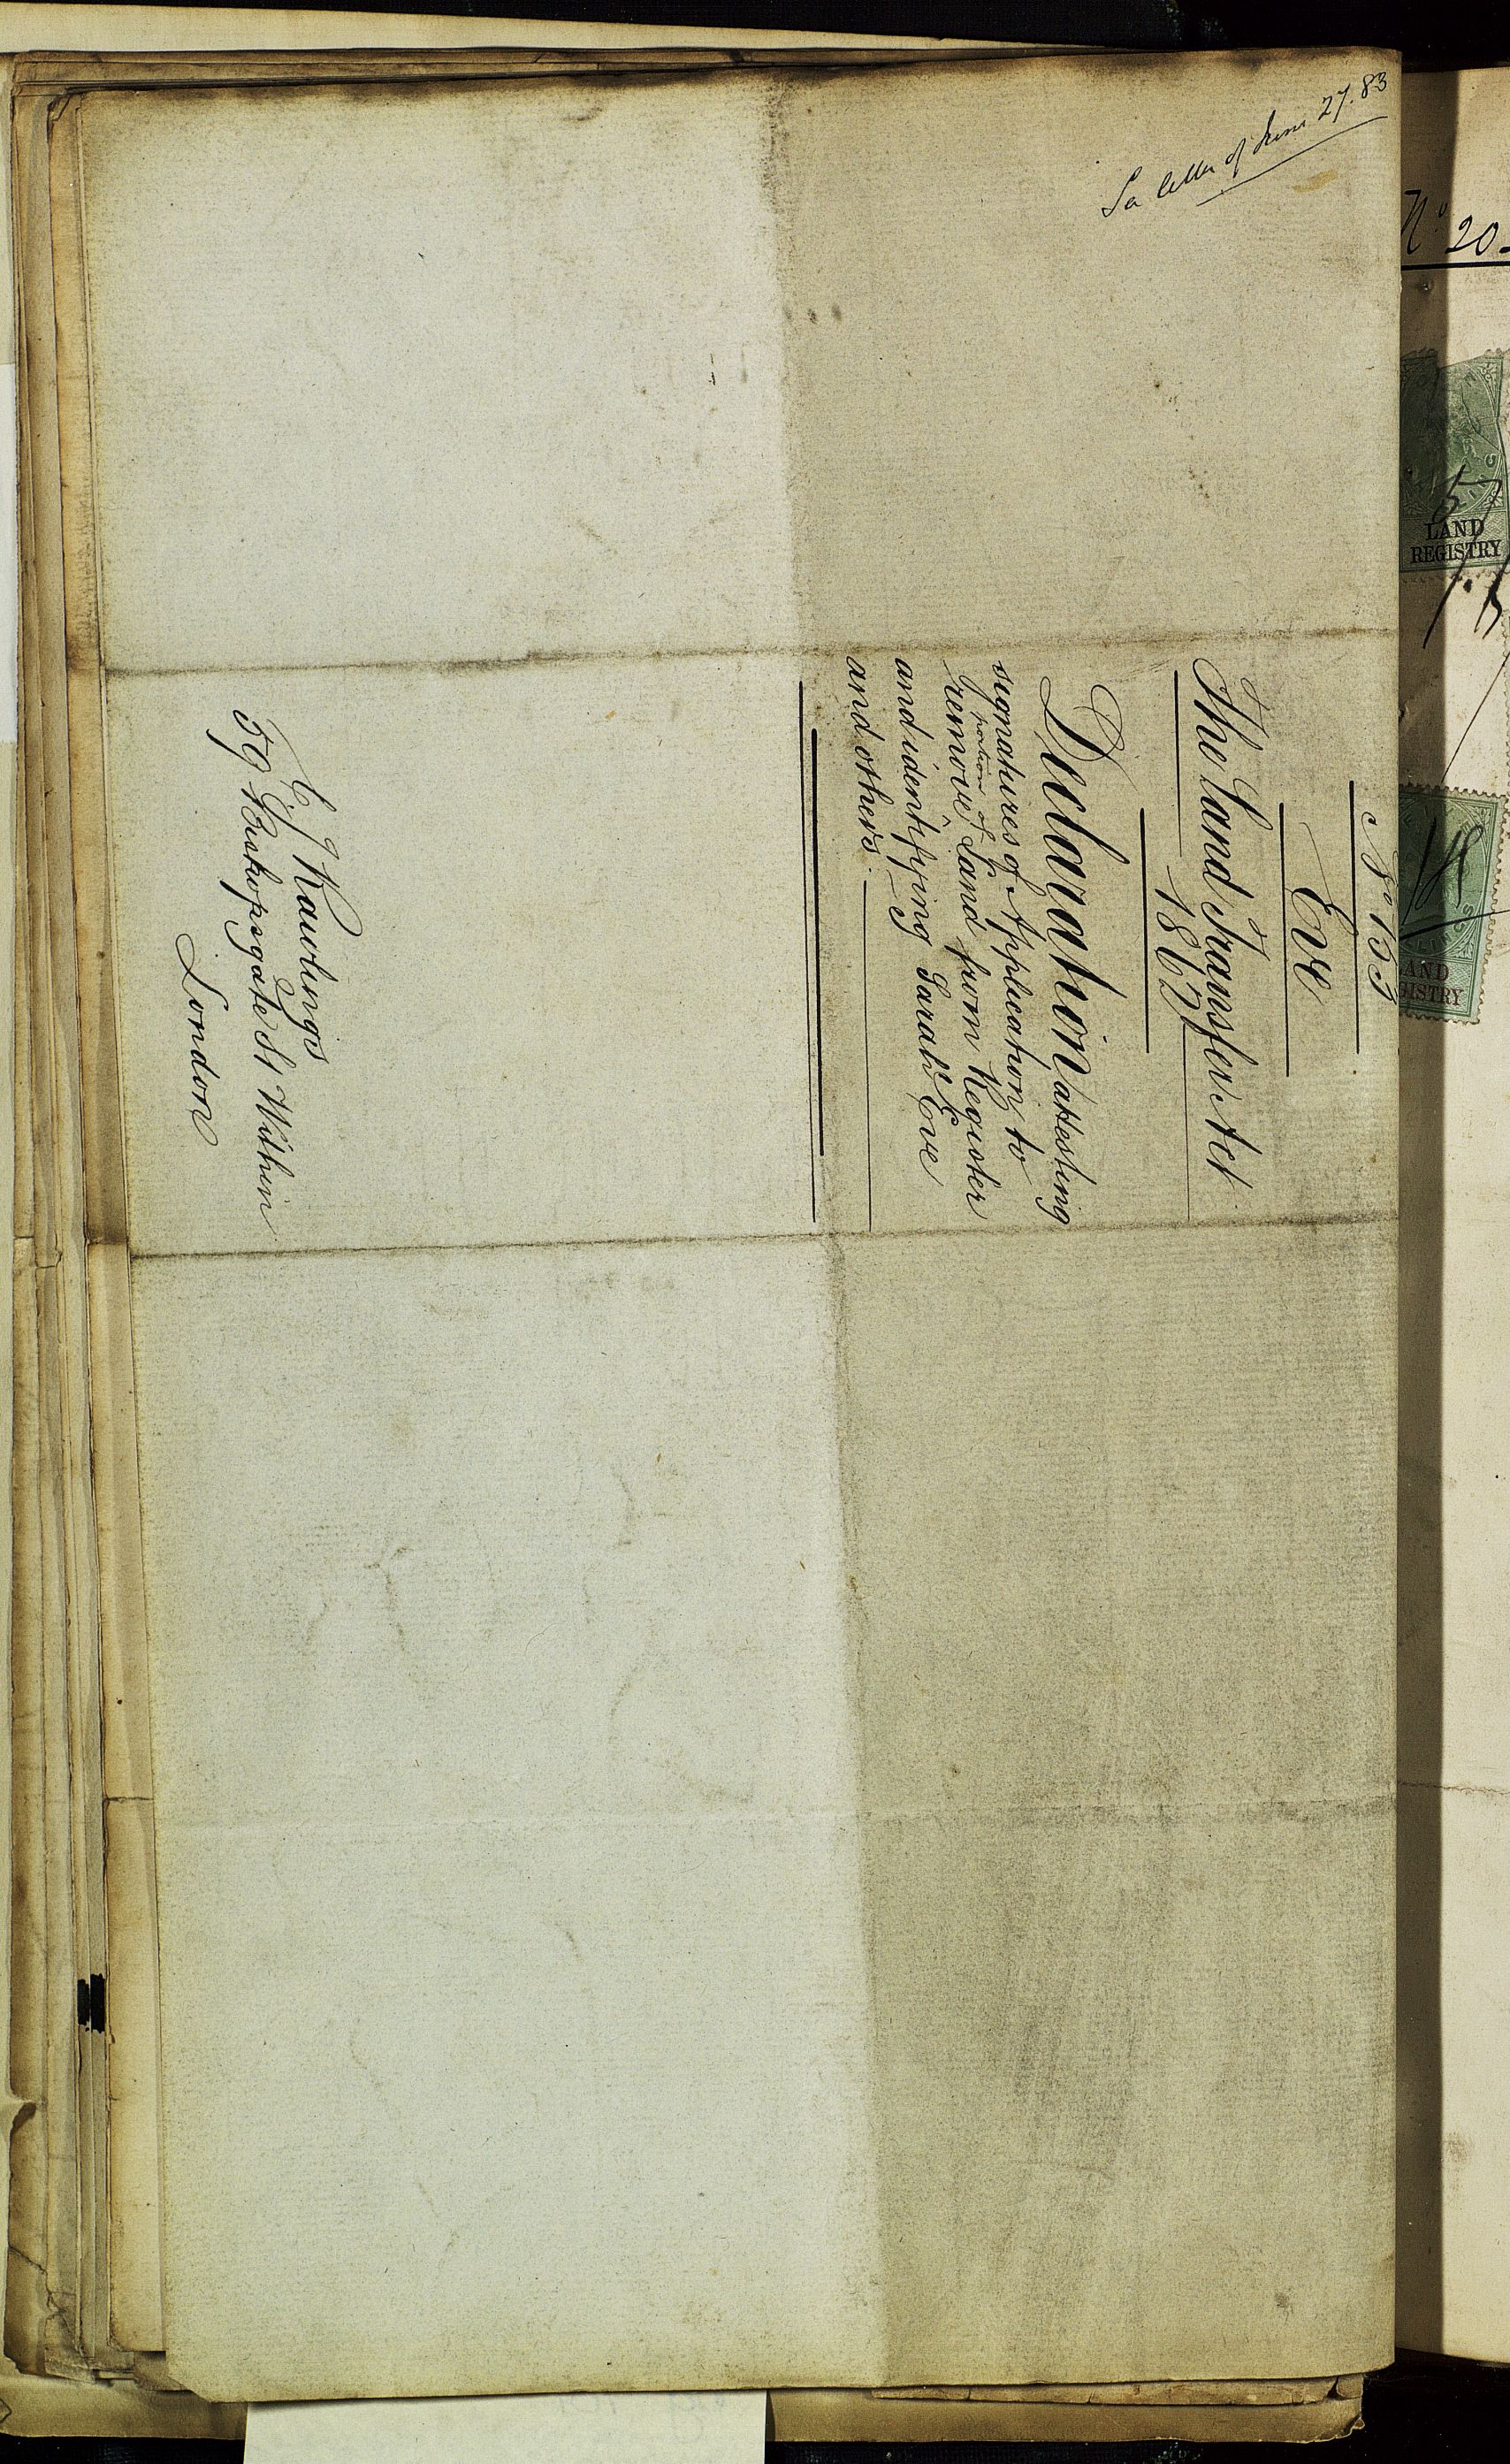 letter of June 27. 83
No 153
Eve
The Land Transfer Act
1862
Declaration attesting
signatures of Application to
remove portion of Land from Register
and identifying Sarah Eve
and others.
C J Rawlings
59 Bishopsgate St Within
London
No 20
LAND
REGISTRY
LAND
REGISTRY